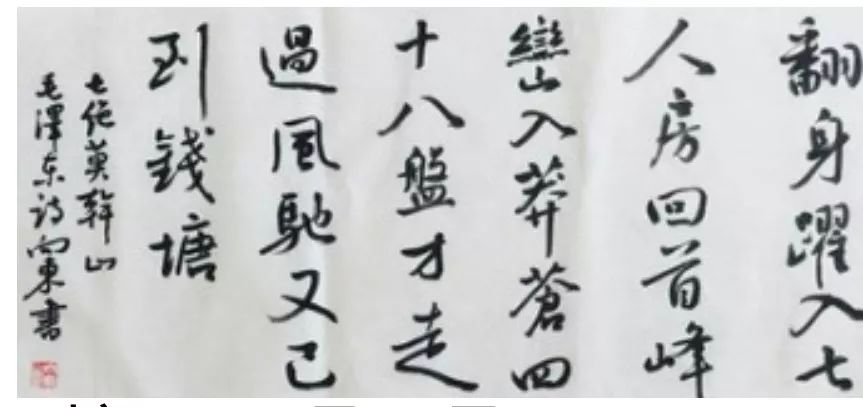 翻身躍入七
人房回首峰
巒入莽蒼四
十八盤才走
過風馳又已
到錢塘
七絕莫幹山
毛澤东詩向東書